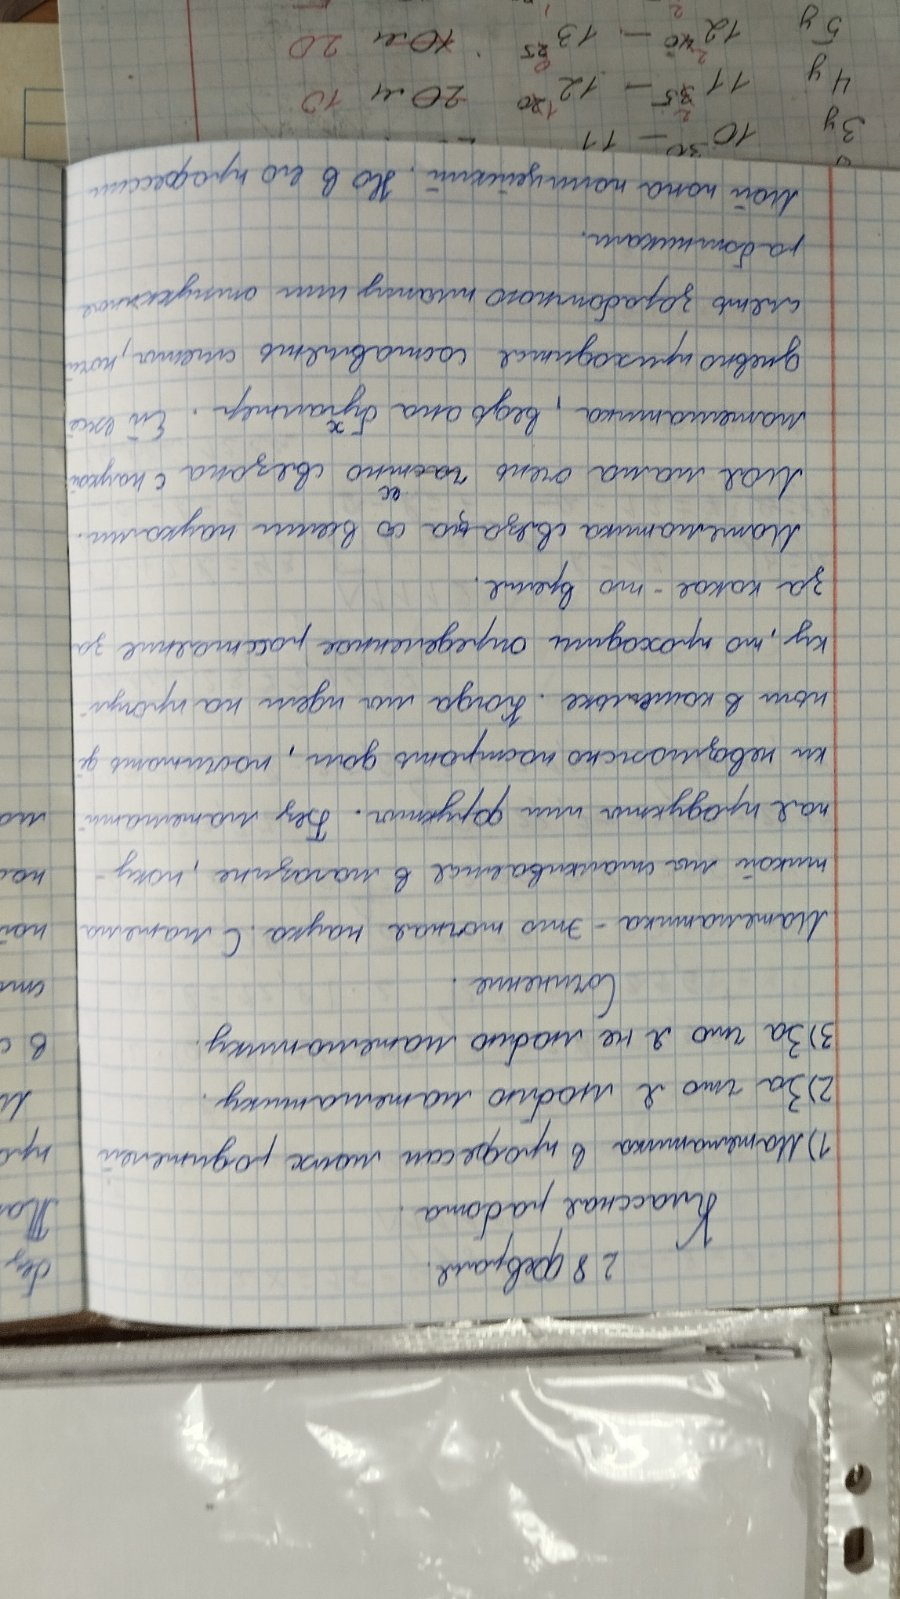 28 февраля.
Классная работа.
1) Математика в професии моих родителей
2) За что я люблю математику.
3) За что я не люблю математику.
Сочинение.
Математика - это точная наука. С матема
тикой мы сталкиваемся в магазине, поку-
пая продукты или фрукты. Без математи-
ки невозможно построить дом, посчитать д
ньги в кошельке. Когда мы идем на прогул
ку, то проходим определенное расстояние за
за какое-то время.
Математика связана со всеми науками.
Моя мама очень часто связана с наукой
математика, ведь она бухгалтер. Ей еже
дневно приходится составлять сметы, начи
слять заработную плату или отпускные
работникам.
Мой папа полицейский. Но в его профессии
без
Пап
пра
М
в с
сти
пой
пос
ма
3 у 10 30 – 11
4 у 11 35 – 12 20 20 м 10
5 у 12 40 – 13 25 10 м 20